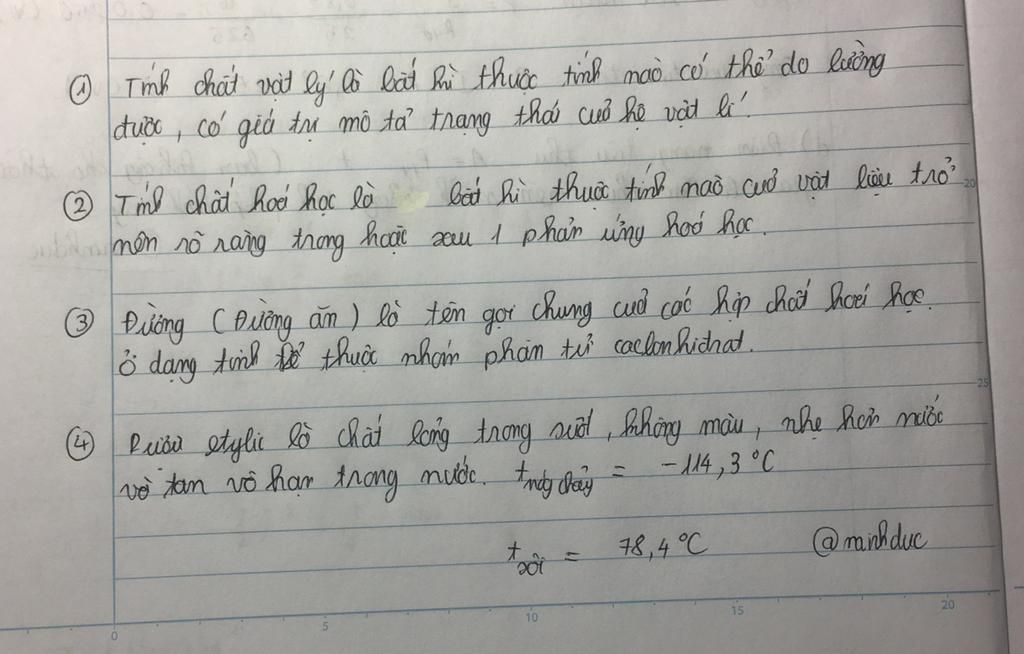 ① Tính chất vật lý là bất kì thuộc tính nào có thể đo lường
được, có giá trị mô tả trạng thái của hệ vật lí.
② Tính chất hoá học là bất kì thuộc tính nào của vật liệu trở
nên rõ ràng trong hoặc sau 1 phản ứng hoá học.
③ Đường (Đường ăn) là tên gọi chung của các hợp chất hoá học
ở dạng tinh thể thuộc nhóm phân tử cacbonhidrat.
④ Rượu etylic là chất lỏng trong suốt, không màu, nhẹ hơn nước
và tan vô hạn trong nước. t nóng chảy = -114,3 °C
t sôi = 78,4 °C @manhduc
0 5 10 15 20
20
25